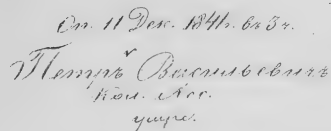 Оп. 11 Дек. 1841 г. въ 3 ч.
Петръ Васильевичъ
Кол. Асс.
умре.